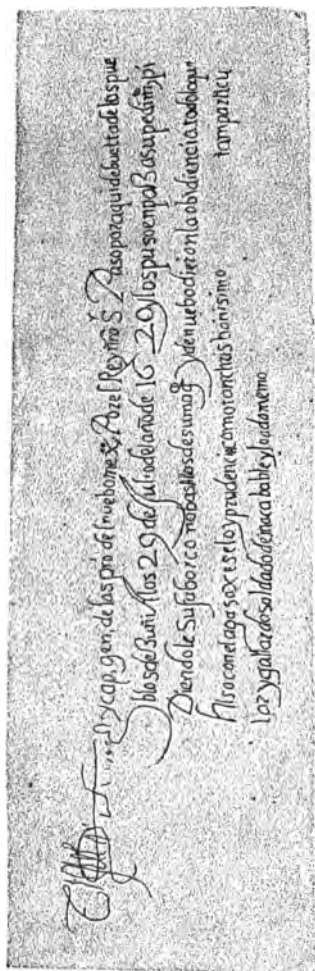 n y cap. gen. de las pro de l nuebo mexco Por el Rey nro Sr Paso por aqui de buelta de los pue
blos de Zuñi a los 29 de Julio del año de 1620 y los puso en paz a su pedimto pi
diendole su fabor como basallos de su magd y de nuebo dieron la obidiencia todo lo que
hiso con el agasaxe selo y prudencia como tan christianisimo tam particu
lar y gallardo soldado de inacabable y loada memo